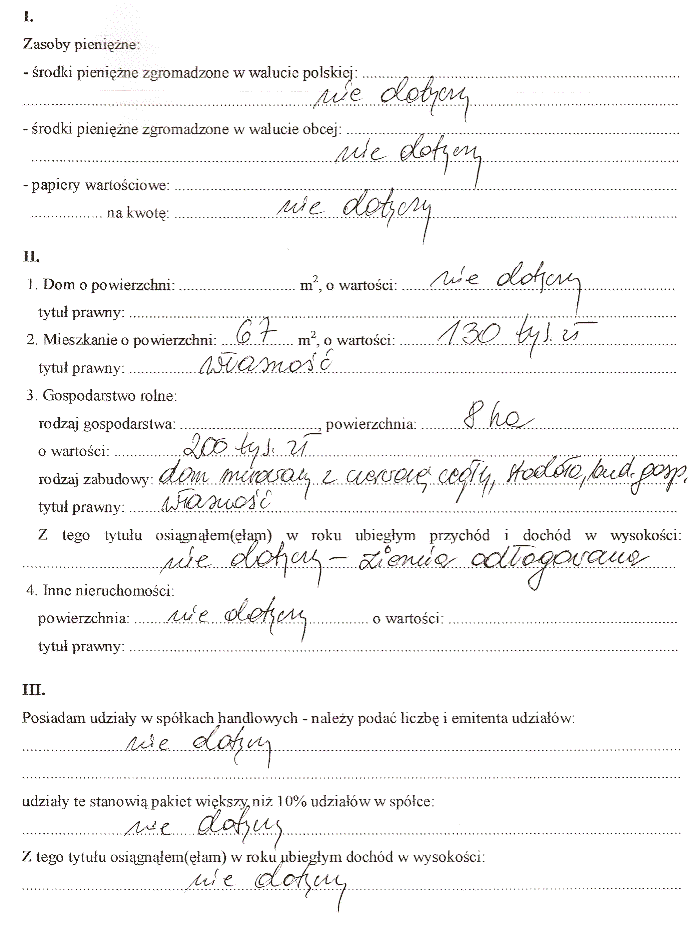 I.
Zasoby pieniężne:
- środki pieniężne zgromadzone w walucie polskiej:
nie dotyczy
- środki pieniężne zgromadzone w walucie obcej:
nie dotyczy
- papiery wartościowe:
na kwotę: nie dotyczy
II.
1. Dom o powierzchni: m², o wartości: nie dotyczy
tytuł prawny:
2. Mieszkanie o powierzchni: 67 m², o wartości: 130 tys. zł
tytuł prawny: własność
3. Gospodarstwo rolne:
rodzaj gospodarstwa: , powierzchnia: 8 ha
o wartości: 200 tys. zł
rodzaj zabudowy: dom murowany z czerwonej cegły, stodoła, bud. gosp.
tytuł prawny: własność
Z tego tytułu osiągnąłem(ęłam) w roku ubiegłym przychód i dochód w wysokości:
nie dotyczy – ziemia odłogowana
4. Inne nieruchomości:
powierzchnia: nie dotyczy o wartości:
tytuł prawny:
III.
Posiadam udziały w spółkach handlowych - należy podać liczbę i emitenta udziałów:
nie dotyczy
udziały te stanowią pakiet większy niż 10% udziałów w spółce:
nie dotyczy
Z tego tytułu osiągnąłem(ęłam) w roku ubiegłym dochód w wysokości:
nie dotyczy